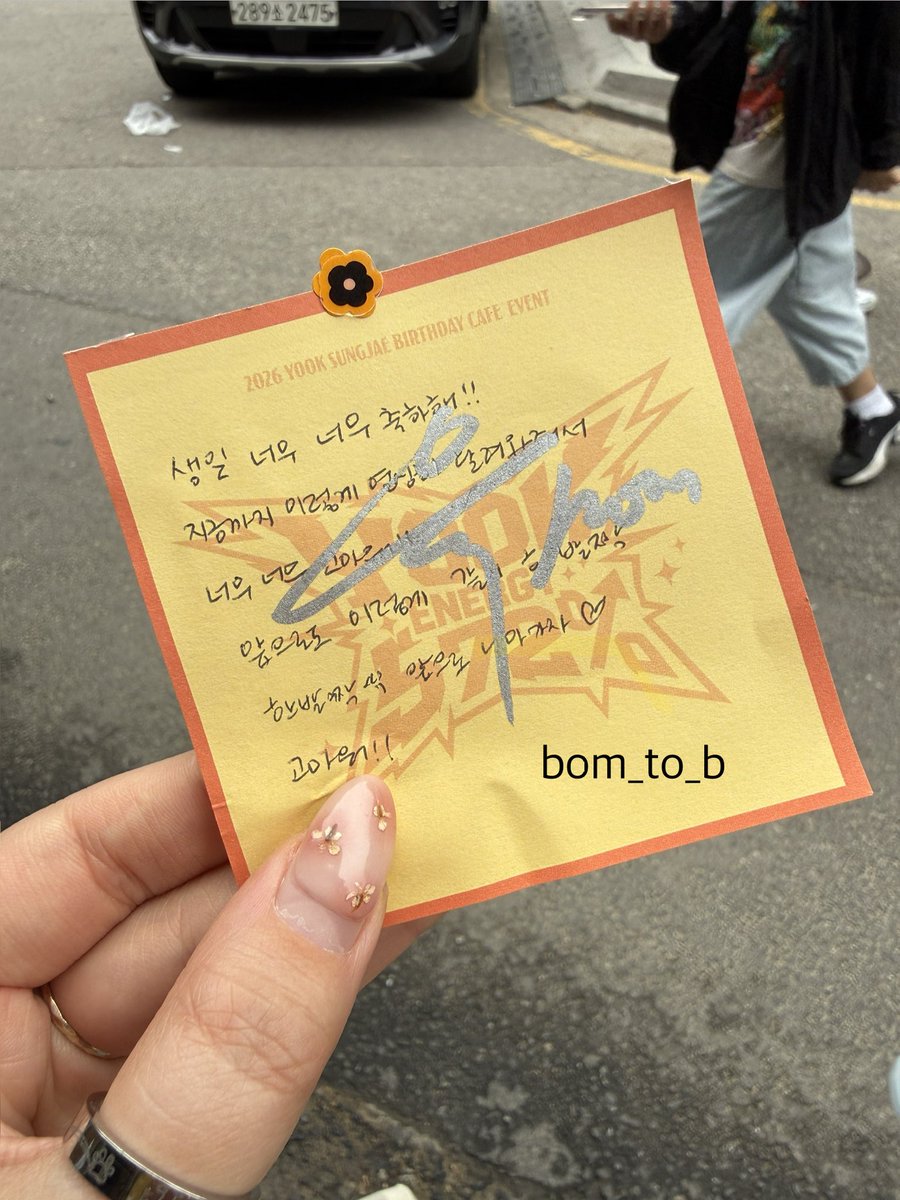 289소 2475
2026 YOOK SUNGJAE BIRTHDAY CAFE EVENT
생일 너무 너무 축하해!!
지금까지 이렇게 열심히 달려와줘서
너무 너무 고마워
앞으로도 이렇게 같이 한 발짝
한발짝 앞으로 나아가자♡
고마워!!
YOOK
ENERGY
572%
bom_to_b